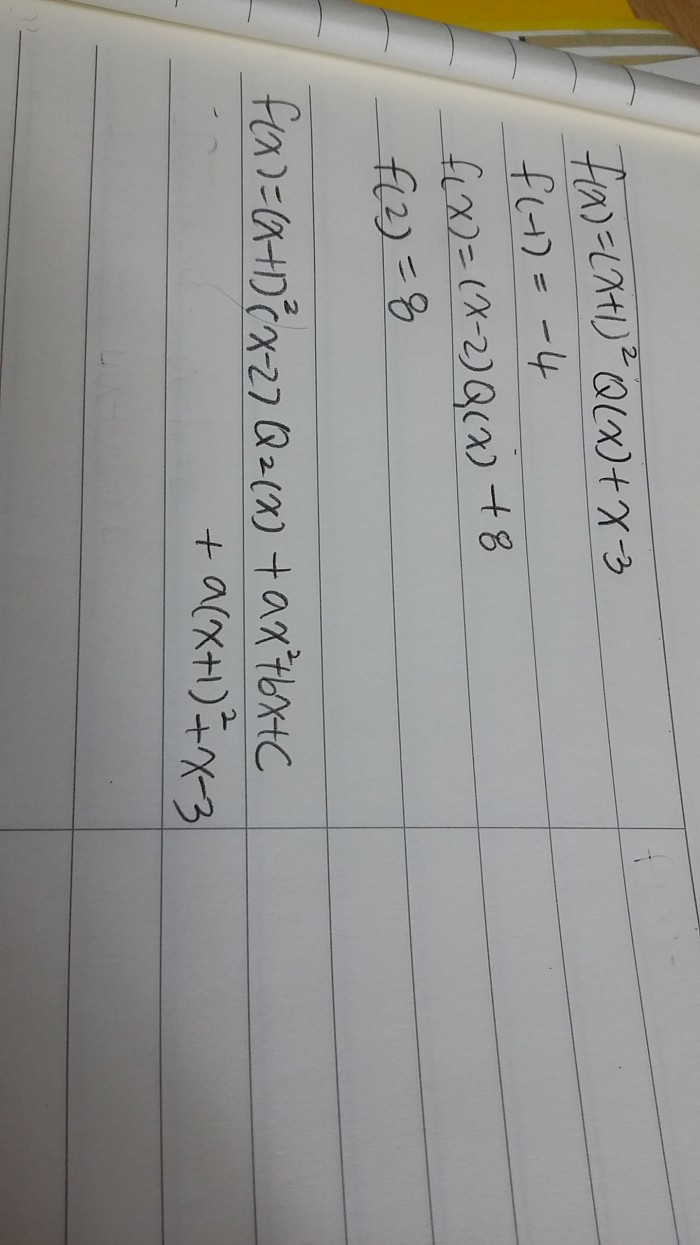 f(x)=(x+1)² Q(x)+x-3
f(-1) = -4
f(x)=(x-2)Q(x)+8
f(2)=8
f(x)=(x+1)²(x-2)Q₂(x)+ax²+bx+c
+a(x+1)²+x-3